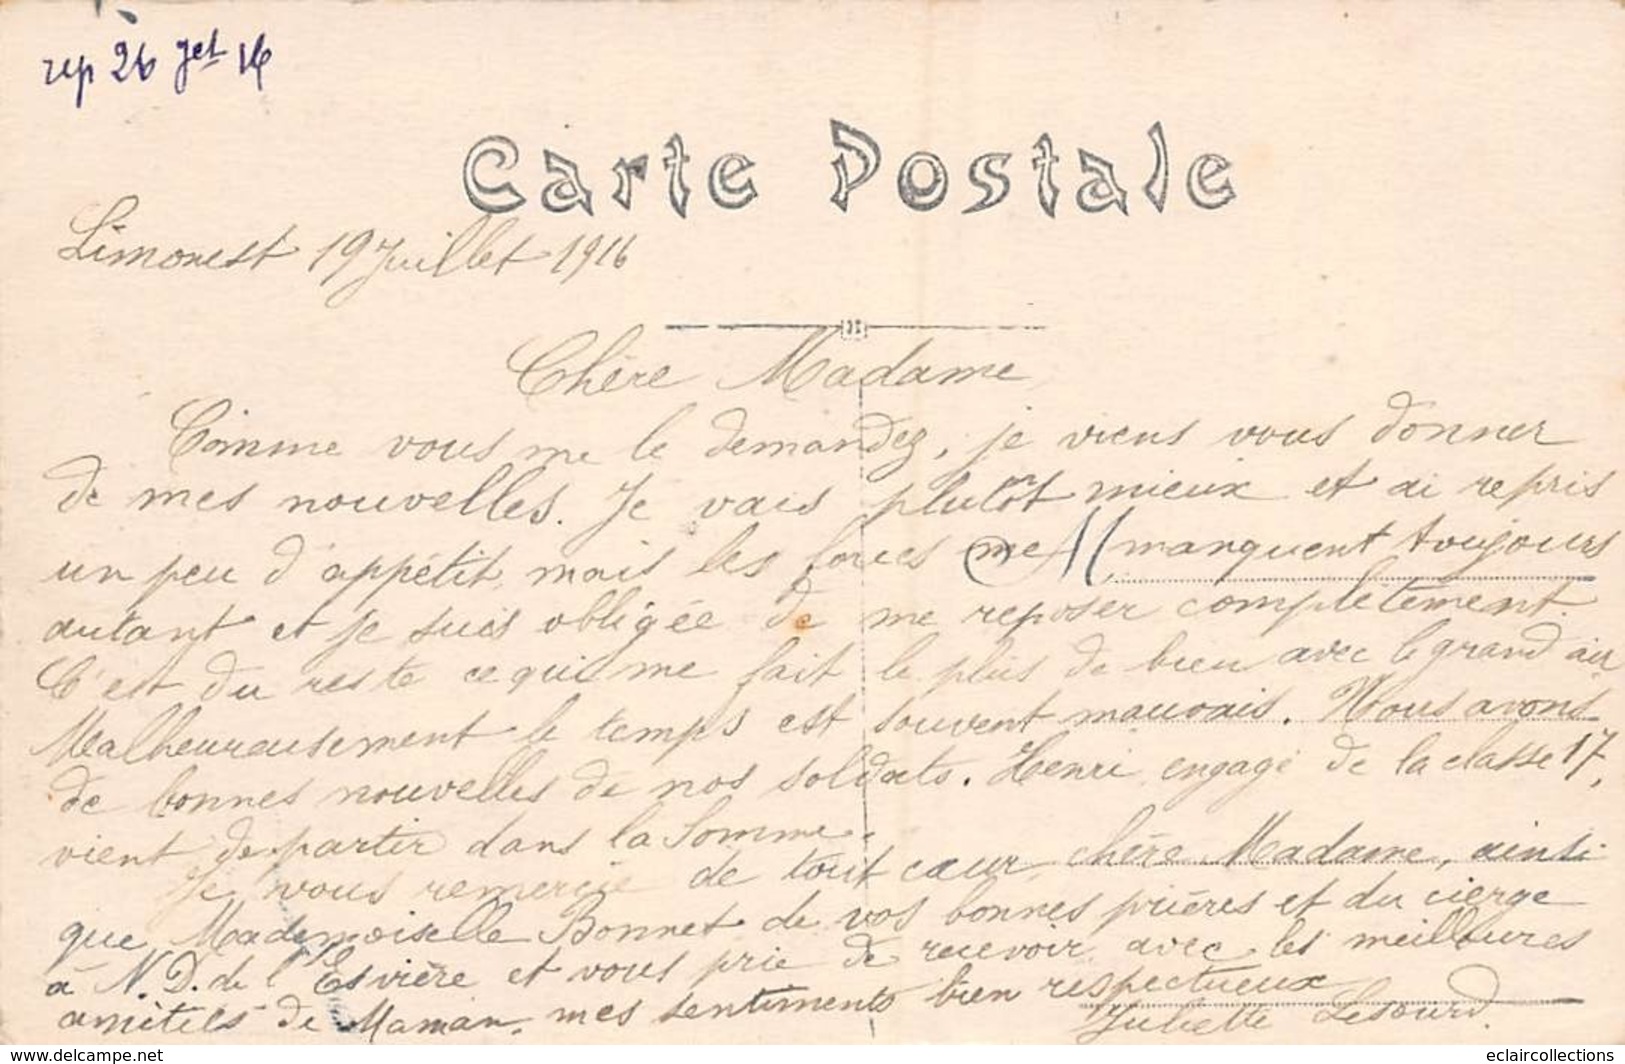 rep 26 jet 16
Carte Postale
Limonest 19 Juillet 1916
Chère Madame
Comme vous me le demandez, je viens vous donner
de mes nouvelles. Je vais plutôt mieux et ai repris
un peu d'appétit, mais les forces me manquent toujours
autant et je suis obligée de me reposer complètement.
C'est du reste ce qui me fait le plus de bien avec le grand air
Malheureusement le temps est souvent mauvais. Nous avons
de bonnes nouvelles de nos soldats. Henri, engagé de la classe 17,
vient de partir dans la Somme.
Je vous remercie de tout cœur, chère Madame, ainsi
que Mademoiselle Bonnet de vos bonnes prières et du cierge
à N. D. de l'Esvière et vous prie de recevoir avec les meilleures
amitiés de Maman, mes sentiments bien respectueux
Juliette Lesourd.
eclaircollections
www.delcampe.net